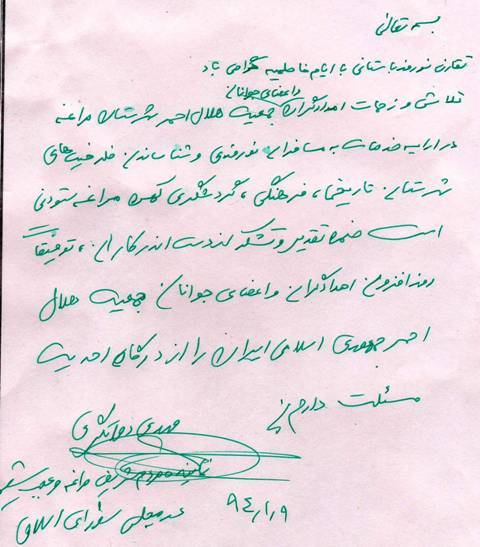 بسمه تعالی
تقارن نوروز باستانی با ایام فاطمیه گرامی باد
و اعضای جوانان
تلاش و زحمات امدادگران جمعیت هلال احمر شهرستان مراغه
در ارایه خدمات به مسافران نوروزی و شناساندن ظرفیت های
شهرستان تاریخی، فرهنگی، گردشگری کهن مراغه ستودنی
است ضمن تقدیر و تشکر از دست اندرکاران، توفیقات
روزافزون امدادگران و اعضای جوانان جمعیت هلال
احمر جمهوری اسلامی ایران را از درگاه احدیت
مسئلت دارم
مهدی دواتگری
نماینده مردم شریف مراغه و عجب شیر
در مجلس شورای اسلامی
۹۴/۱/۹